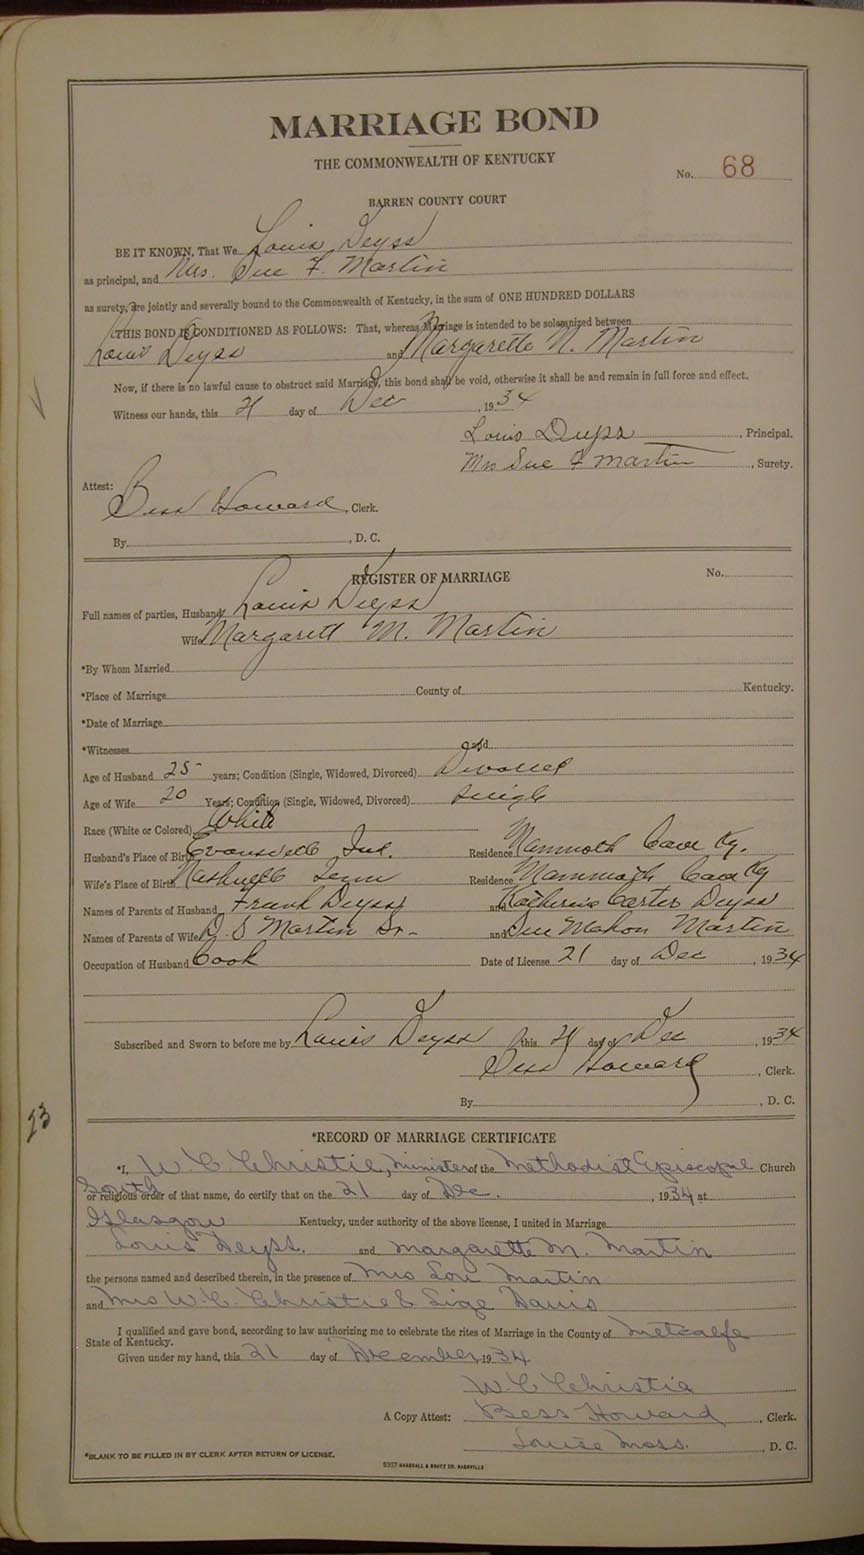 MARRIAGE BOND
THE COMMONWEALTH OF KENTUCKY
No. 68
BARREN COUNTY COURT
BE IT KNOWN, That We Louis Deyss
as principal, and Mrs. Sue F. Martin
as surety, are jointly and severally bound to the Commonwealth of Kentucky, in the sum of ONE HUNDRED DOLLARS
THIS BOND IS CONDITIONED AS FOLLOWS: That, whereas Marriage is intended to be solemnized between
Louis Deyss and Margarette M. Martin
Now, if there is no lawful cause to obstruct said Marriage, this bond shall be void, otherwise it shall be and remain in full force and effect.
Witness our hands, this 21 day of Dec, 1934
Louis Deyss, Principal.
Mrs Sue F Martin, Surety.
Attest:
Bess Howard, Clerk.
By, D. C.
REGISTER OF MARRIAGE No.
Full names of parties, Husband Louis Deyss
Wife Margarett M. Martin
*By Whom Married
*Place of Marriage County of Kentucky.
*Date of Marriage
*Witnesses and
Age of Husband 25 years; Condition (Single, Widowed, Divorced) Divorced
Age of Wife 20 Years; Condition (Single, Widowed, Divorced) Single
Race (White or Colored) White
Husband's Place of Birth Evansville Ind. Residence Mammoth Cave Ky.
Wife's Place of Birth Nashville Tenn Residence Mammoth Cave Ky
Names of Parents of Husband Frank Deyss and Catherine Carter Deyss
Names of Parents of Wife S Martin Sr. and Sue Mahon Martin
Occupation of Husband Cook Date of License 21 day of Dec, 1934
Subscribed and Sworn to before me by Louis Deyss this 21 day of Dec, 1934
Bess Howard, Clerk.
By, D. C.
23
*RECORD OF MARRIAGE CERTIFICATE
*I, W. C. Christie, Minister of the Methodist Episcopal Church
South
or religious order of that name, do certify that on the 21 day of Dec., 1934 at
Glasgow Kentucky, under authority of the above license, I united in Marriage
Louis Deyss. and Margarette M. Martin
the persons named and described therein, in the presence of Mrs Lou Martin
and Mrs W. C. Christie & Lige Davis
I qualified and gave bond, according to law authorizing me to celebrate the rites of Marriage in the County of Metcalfe
State of Kentucky.
Given under my hand, this 21 day of December, 1934
W. C Christie
A Copy Attest: Bess Howard, Clerk.
Louise Moss., D. C.
*BLANK TO BE FILLED IN BY CLERK AFTER RETURN OF LICENSE.
MARSHALL & BRUCE CO. NASHVILLE